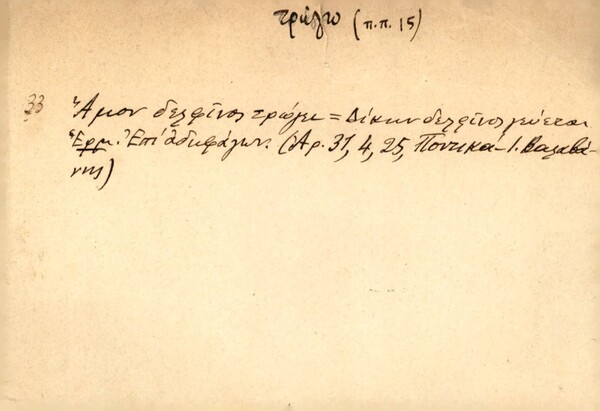 τρώγω (π.π. 15)
33 Ἄμον δελφῖνος τρώγει = Δίκην δελφῖνος γεύεται.
Ἑρμ. Ἐπὶ ἀδηφάγων. (Ἀρ. 31, 4, 25, Ποντικα - Ι. Βαλαβά-
νης)